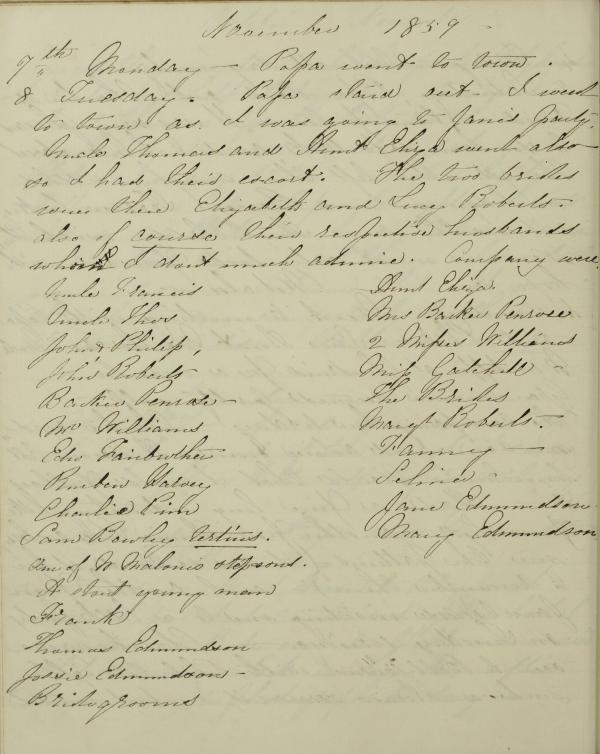 November 1859
7th Monday - Papa went to town.
8 Tuesday. Papa staid out - I went
to town as I was going to Janes party.
Uncle Thomas and Aunt Eliza went also
so I had their escort. The two brides
were there Elizabeth and Lucy Roberts -
also of course their respective husbands
whom I dont much admire. Company were
Uncle Francis
Uncle Thos
John & Philip,
John Roberts
Barker Penrose -
Mr Williams
Edw Fairbrother
Reuben Harvey
Charlie Pim
Sam Bewley tertius.
One of W Malones stepsons.
A stout young man
Frank
Thomas Edmundson
Jossie Edmundson -
Bridegrooms
Aunt Eliza
Mrs Barker Penrose
2 Misses Williams
Miss Gatchell -
The Brides
Margt Roberts -
Fanny -
Selina -
Jane Edmundson
Mary Edmundson